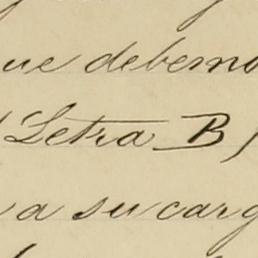 que debemo
(Letra B)
a su carg